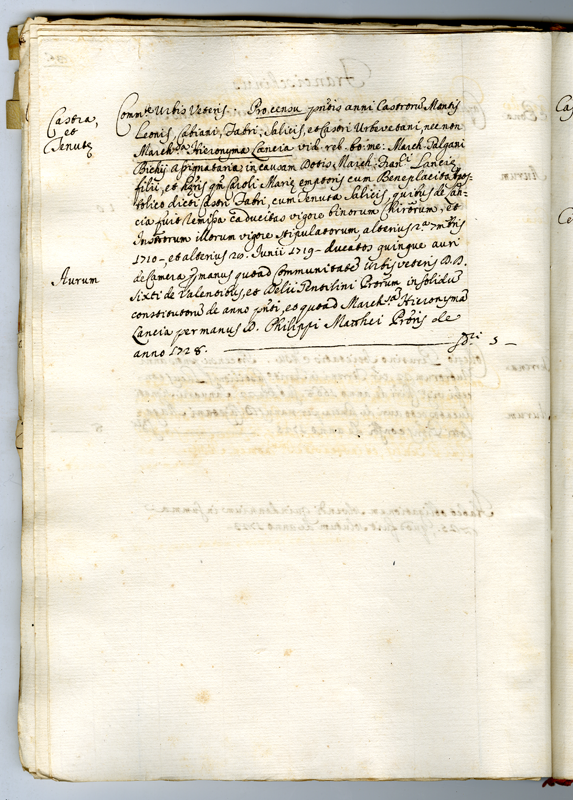 Castra,
et
Tenutę
Com̃tas Urbis Veteris. Pro censu pñtis anni Castrorũ Montis
Leonis, Fabiani, Fabri, Salicis, et Castri Urbevetani, nec non
March.sa Hieronyma Lancia vid. rel. bo: me: March.
assignataria in causam Dotis March. Fran.ci Lancię
filij, et hęris qm̃ Caroli Marię emptoris cum Beneplacito Apos-
tolico dicti Castri Fabri, cum Tenuta Salicis, quibus de fan-
cia fuit remissa caducitas vigore binorum Chirõrum, et
Instrõrum illorum vigore stipulatorum, alterius 2.a 7mbris
1710-, et alterius 20. Junii 1719- ducatos quinque auri
Aurum
de Camera p̃ manus quoad Communitatẽ Urbis veteris D.D.
Sixti de Valentibus, et Delii Pontilini Prorum in solidũ
constitutorũ de anno pñti, et quoad March.sa Hieronymã
Lancia per manus D. Philippi Matthei Proris de
anno 1728. ——— 5 –